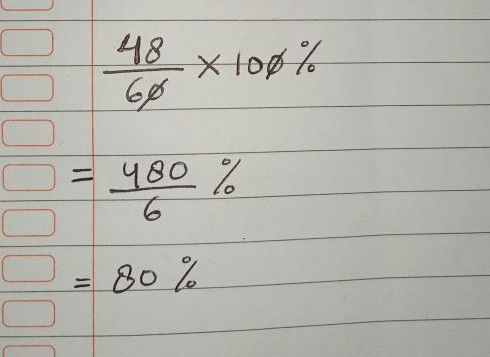 48/60 × 100%
= 480/6 %
= 80%